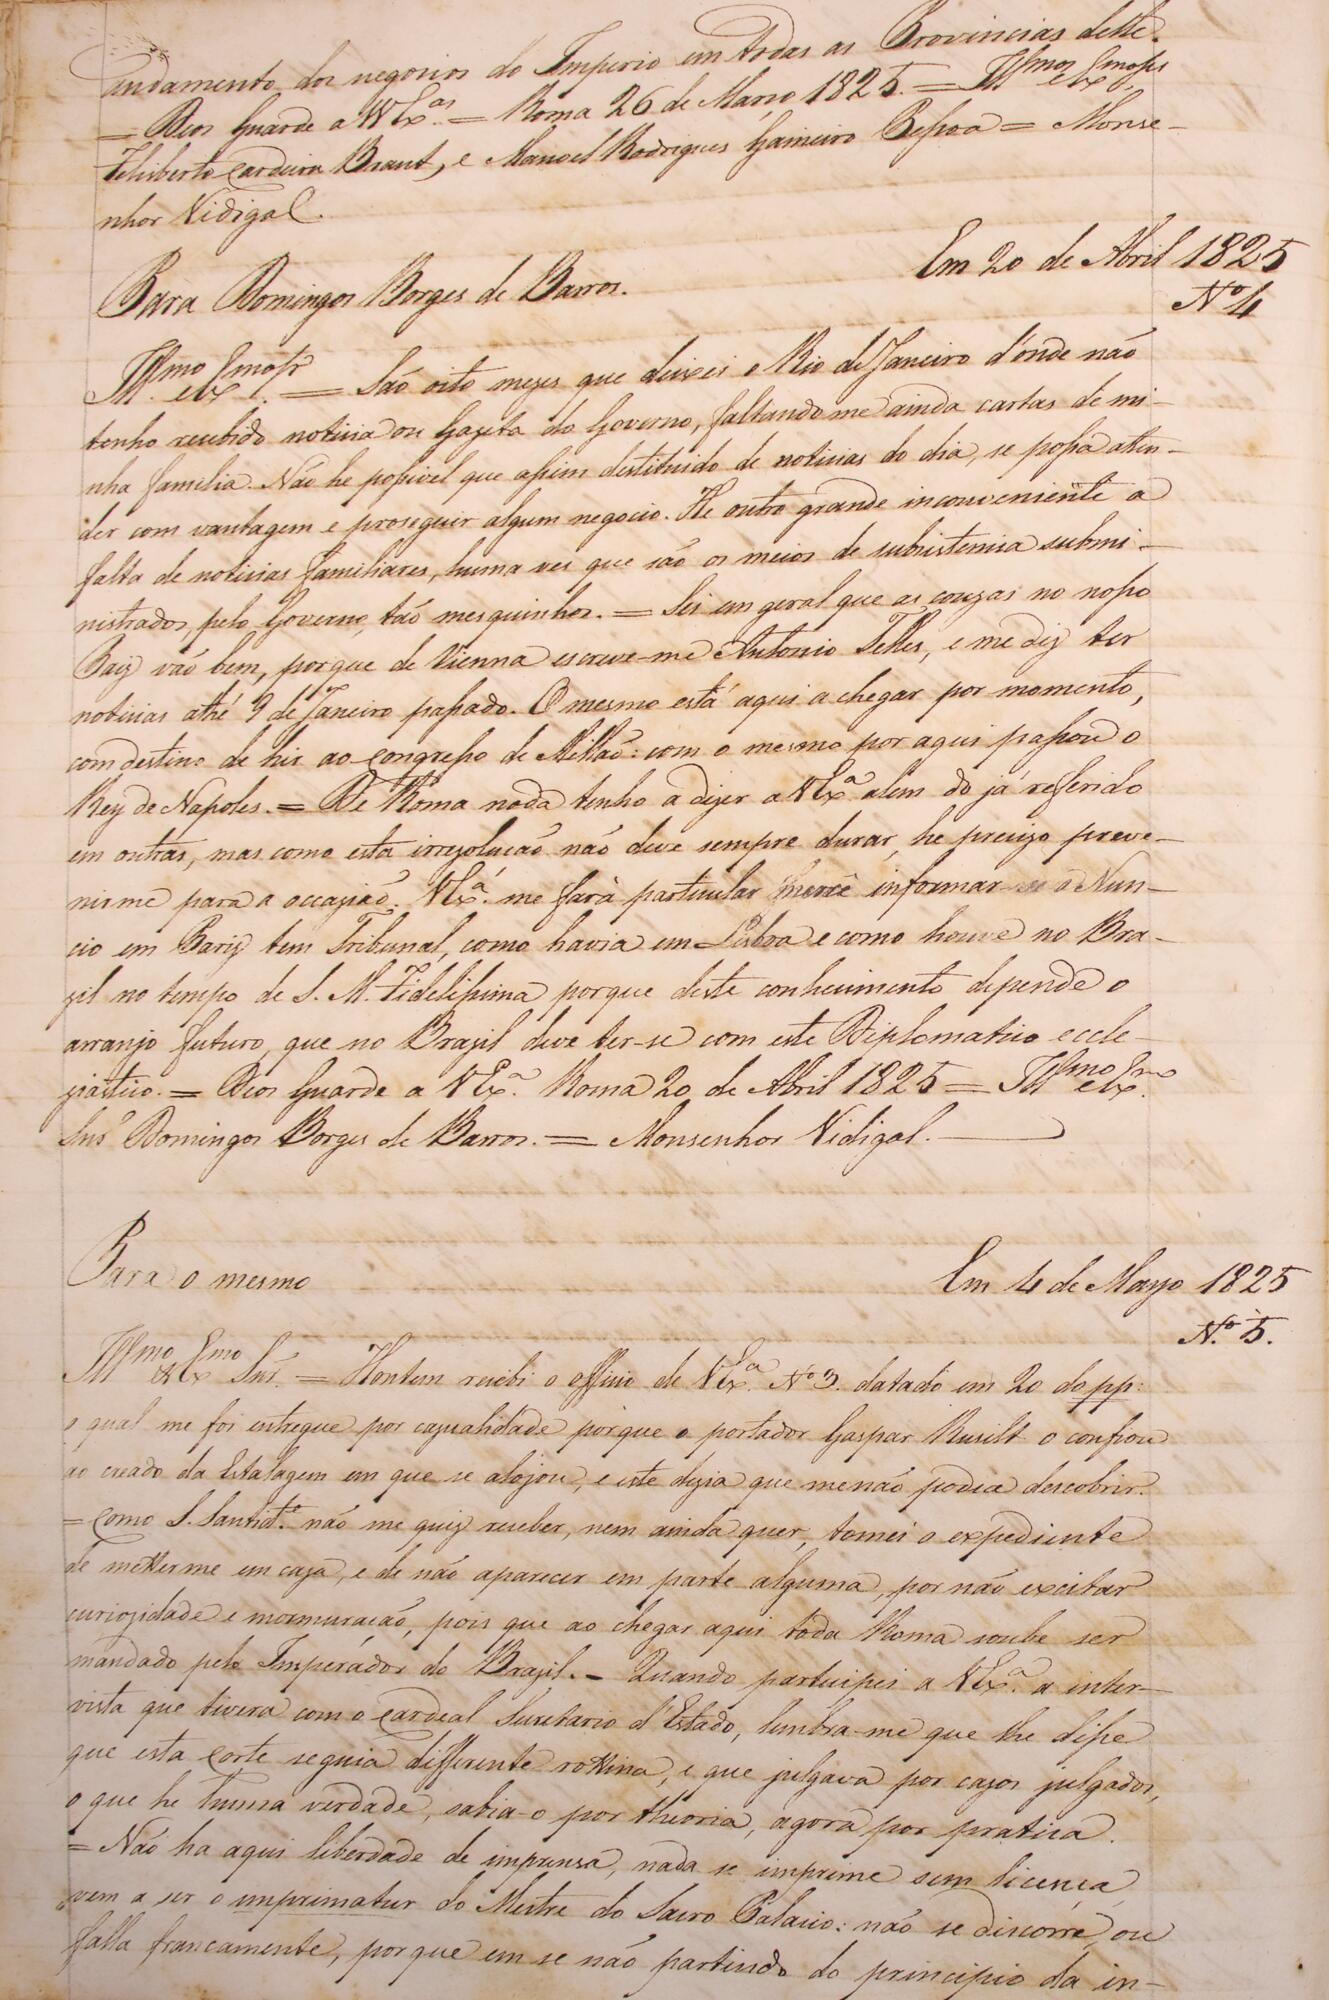 andamento dos negocios do Imperio em todas as Provincias delle.
= Deos Guarde a V Ex.as = Roma 26 de Março 1825. = Ill.mos e Ex.mos Srs
Felisberto Cardeira Brant, e Manoel Rodrigues Gameiro Pessoa = Monse-
nhor Vidigal.
Em 20 de Abril 1825
Para Domingos Borges de Barros.
No 4
Ill.mo e Ex.mo Sr. = São oito mezes que deixei o Rio de Janeiro d'onde não
tenho recebido noticia ou Gazeta do Governo, faltando me ainda cartas de mi-
nha familia. Não he possivel que assim destituido de noticias do dia, se possa aten-
der com vantagem e proseguir algum negocio. He outro grande inconveniente a
falta de noticias familiares, huma ves que são os meios de subsistencia submi-
nistrados, pelo Governo, tão mesquinhos. = Sei em geral que as couzas no nosso
Paiz vão bem, porque de Vienna escreve-me Antonio Telles, e me diz ter
noticias athé 9 de Janeiro passado. O mesmo está aqui a chegar por momento,
com destino de hir ao Congresso de Millão: com o mesmo por aqui passou o
Rey de Napoles. = De Roma nada tenho a dizer a V Ex.a alem do já referido
em outras, mas como esta irrezolucão não deve sempre durar, he precizo preve-
nirme para a occazião. V Ex.a me fará particular mercê informar-se o Nun-
cio em Pariz tem Tribunal, como havia em Lisboa e como houve no Bra-
zil no tempo de S. M. Fidelissima porque deste conhecimento depende o
arranjo futuro, que no Brazil deve ter-se com este Diplomatico eccle-
ziastico. = Deos Guarde a V Ex.a Roma 20 de Abril 1825 = Ill.mo e Ex.mo
Snr Domingos Borges de Barros. = Monsenhor Vidigal.
Para o mesmo
Em 4 de Mayo 1825
No. 5.
Ill.mo e Ex.mo Snr. = Hontem recebi o officio de V Ex.a No 3. datado em 20 do pp:
o qual me foi entregue por cazualidade porque o portador Gaspar o confiou
ao creado da Estalagem em que se alojou, e este dezia que me não podia descobrir.
= Como S. Santid.e não me quiz receber, nem ainda quer, tomei o expediente
de metter me em caza, e de não aparecer em parte alguma, por não excitar
curiozidade e mormuração, pois que ao chegar aqui toda Roma soube ser
mandado pelo Imperador do Brazil. - Quando participei a V Ex.a a inter-
vista que tivera com o Cardeal Secretario d'Estado, lembra-me que lhe disse
que esta Corte seguia differente rottina, e que julgava por cazos julgados,
o que he huma verdade, sabia-o por theoria, agora por pratica.
= Não ha aqui liberdade de imprensa, nada se imprime sem licença,
vem a ser o imprimatur do Mestre do Sacro Palacio: não se discorre, ou
falla francamente, porque em se não partindo do principio da in-